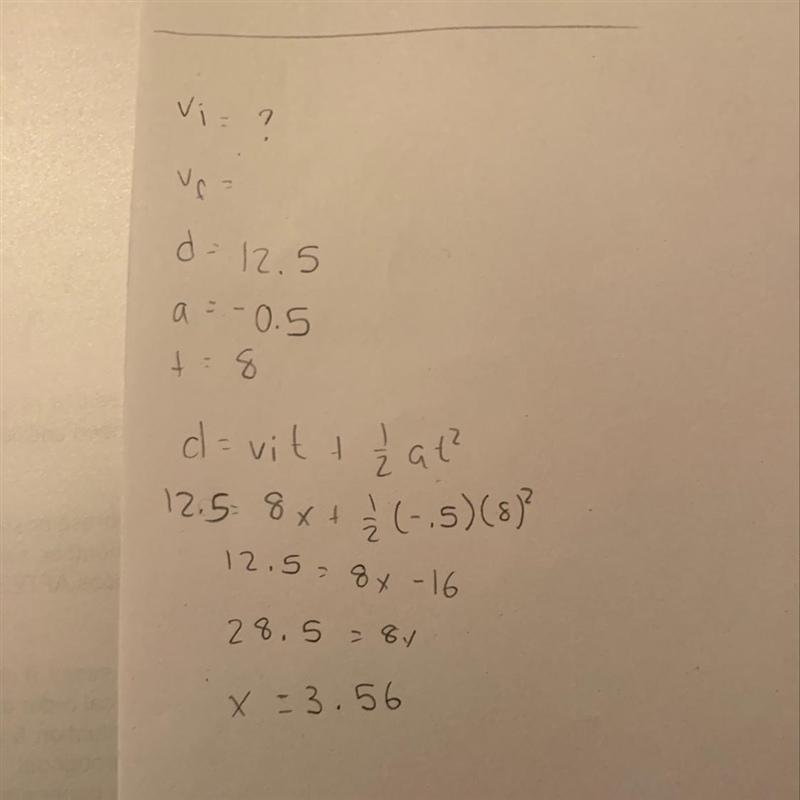 vi = ?
vf =
d = 12.5
a = -0.5
t = 8
d = vit + 1/2 at²
12.5 = 8x + 1/2 (-.5)(8)²
12.5 = 8x - 16
28.5 = 8x
x = 3.56